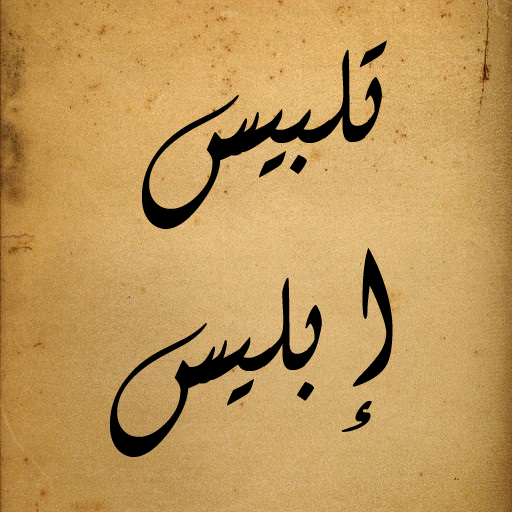 تلبيس
إبليس